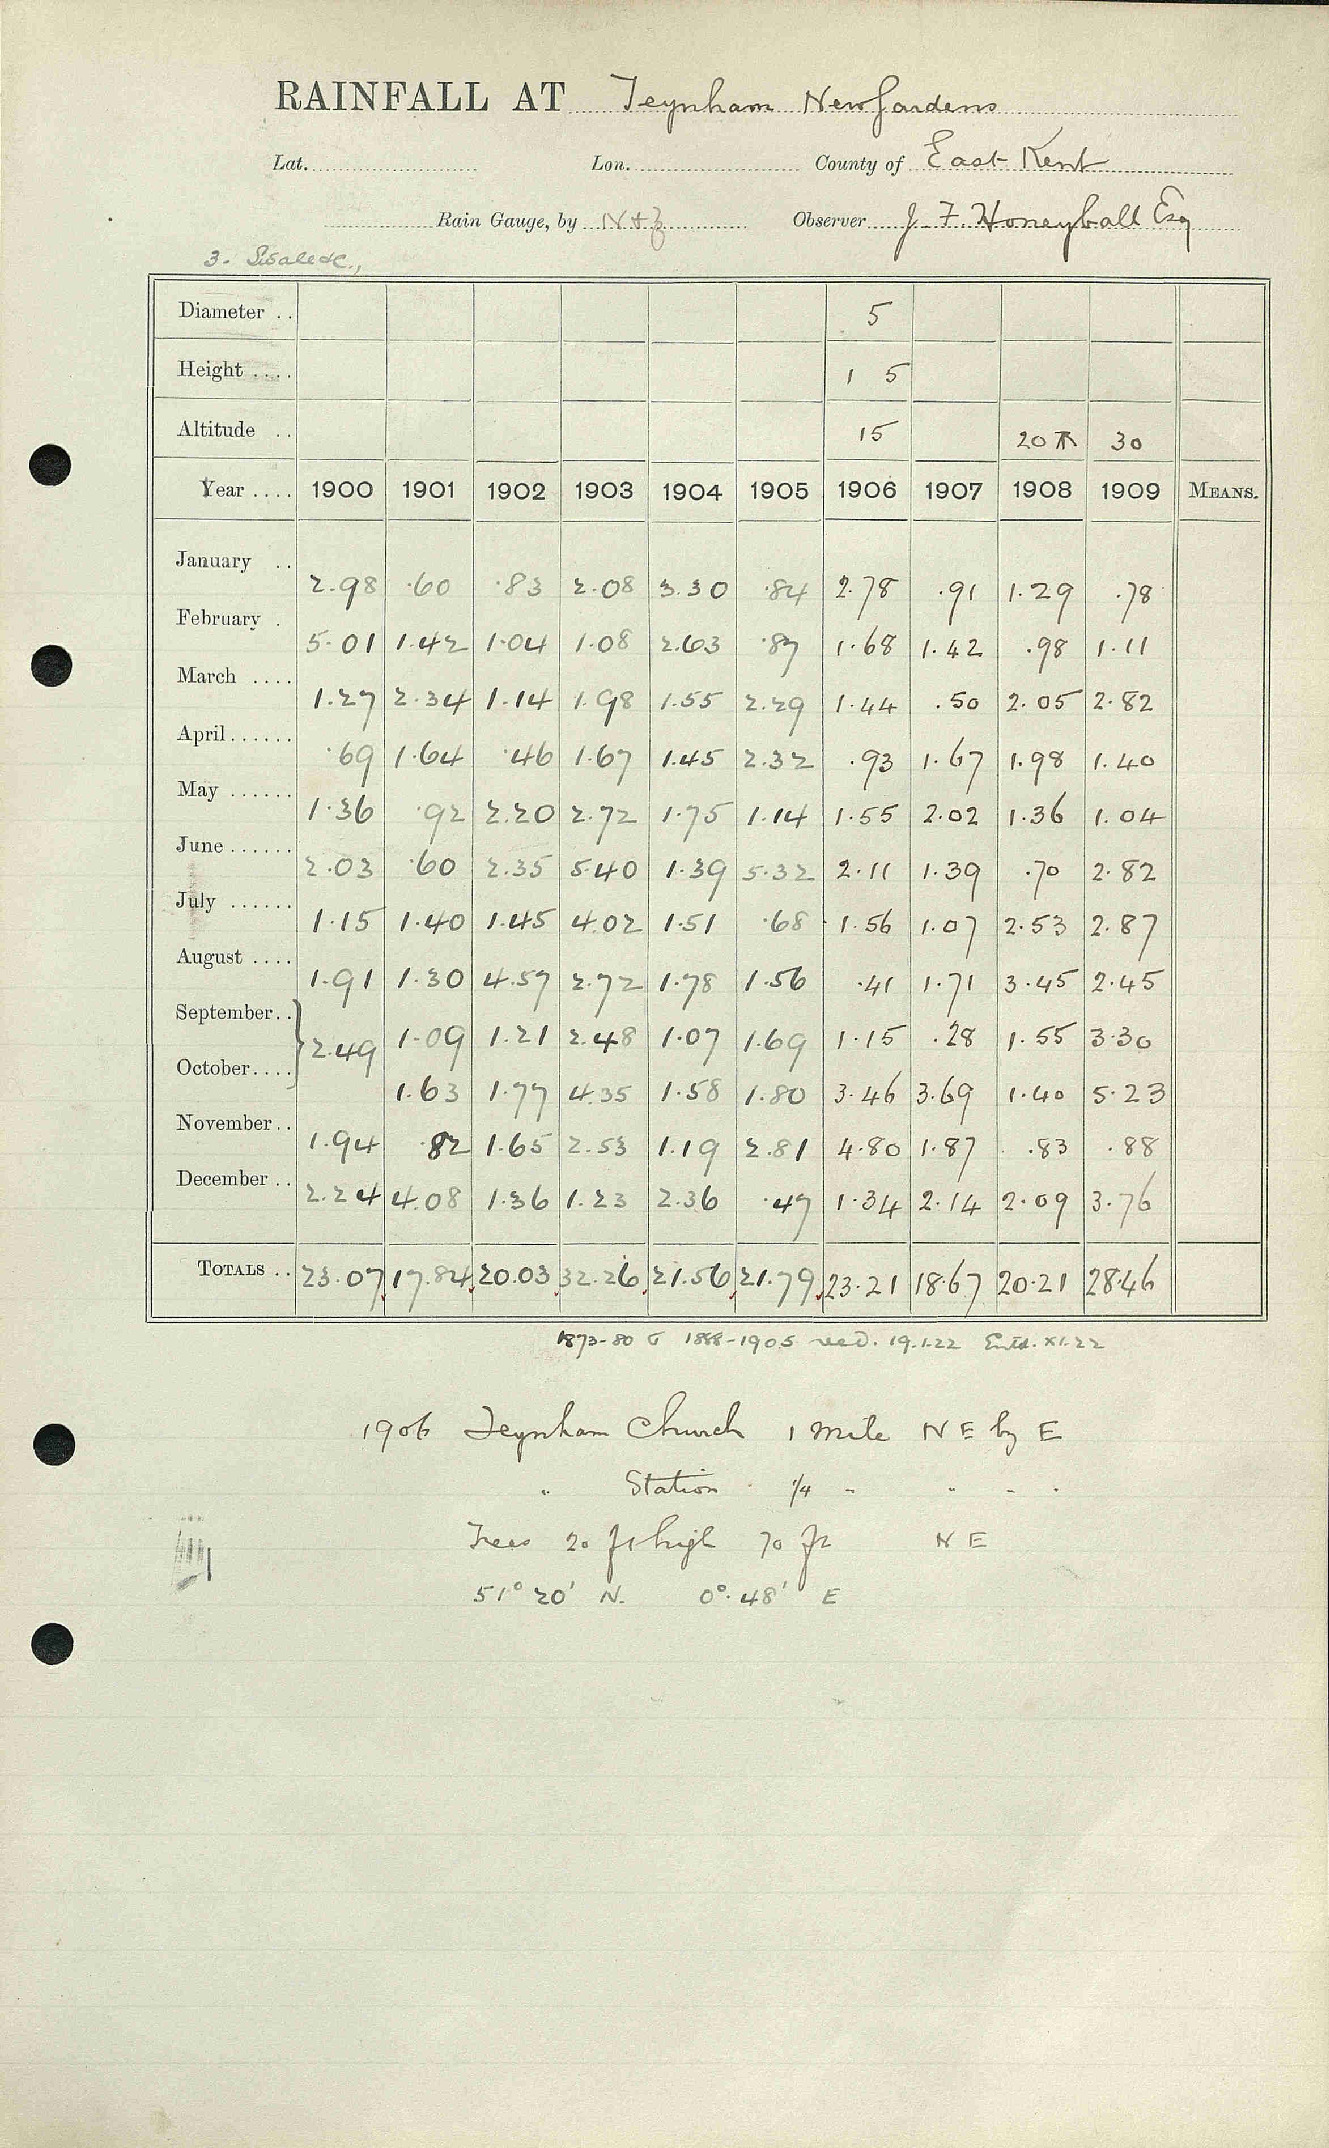 RAINFALL AT Teynham New Gardens
Lat. Lon. County of East Kent
Rain Gauge, by N & Z Observer J. F. Honeyball Esq
3.
Diameter .. 5
Height .... 1 5
Altitude .. 15 20 30
Year .... 1900 1901 1902 1903 1904 1905 1906 1907 1908 1909 MEANS.
January .. 2.98 .60 .83 2.08 3.30 .84 2.78 .91 1.29 .78
February . 5.01 1.42 1.04 1.08 2.63 .87 1.68 1.42 .98 1.11
March .... 1.27 2.34 1.14 1.98 1.55 2.29 1.44 .50 2.05 2.82
April...... .69 1.64 .46 1.67 1.45 2.32 .93 1.67 1.98 1.40
May ...... 1.36 .92 2.20 2.72 1.75 1.14 1.55 2.02 1.36 1.04
June ...... 2.03 .60 2.35 5.40 1.39 5.32 2.11 1.39 .70 2.82
July ...... 1.15 1.40 1.45 4.02 1.51 .68 1.56 1.07 2.53 2.87
August .... 1.91 1.30 4.57 2.72 1.78 1.56 .41 1.71 3.45 2.45
September.. } 2.49 1.09 1.21 2.48 1.07 1.69 1.15 .28 1.55 3.30
October.... 1.63 1.77 4.35 1.58 1.80 3.46 3.69 1.40 5.23
November.. 1.94 .82 1.65 2.53 1.19 2.81 4.80 1.87 .83 .88
December .. 2.24 4.08 1.36 1.23 2.36 .47 1.34 2.14 2.09 3.76
TOTALS .. 23.07 17.84 20.03 32.26 21.56 21.79 23.21 18.67 20.21 28.46
1873-80 & 1888-1905 recd. 19.1.22 Entd. XI.22
1906 Teynham Church 1 mile N E by E
" Station 1/4 " " " "
Trees 20 ft high 70 ft N E
51° 20' N. 0° 48' E